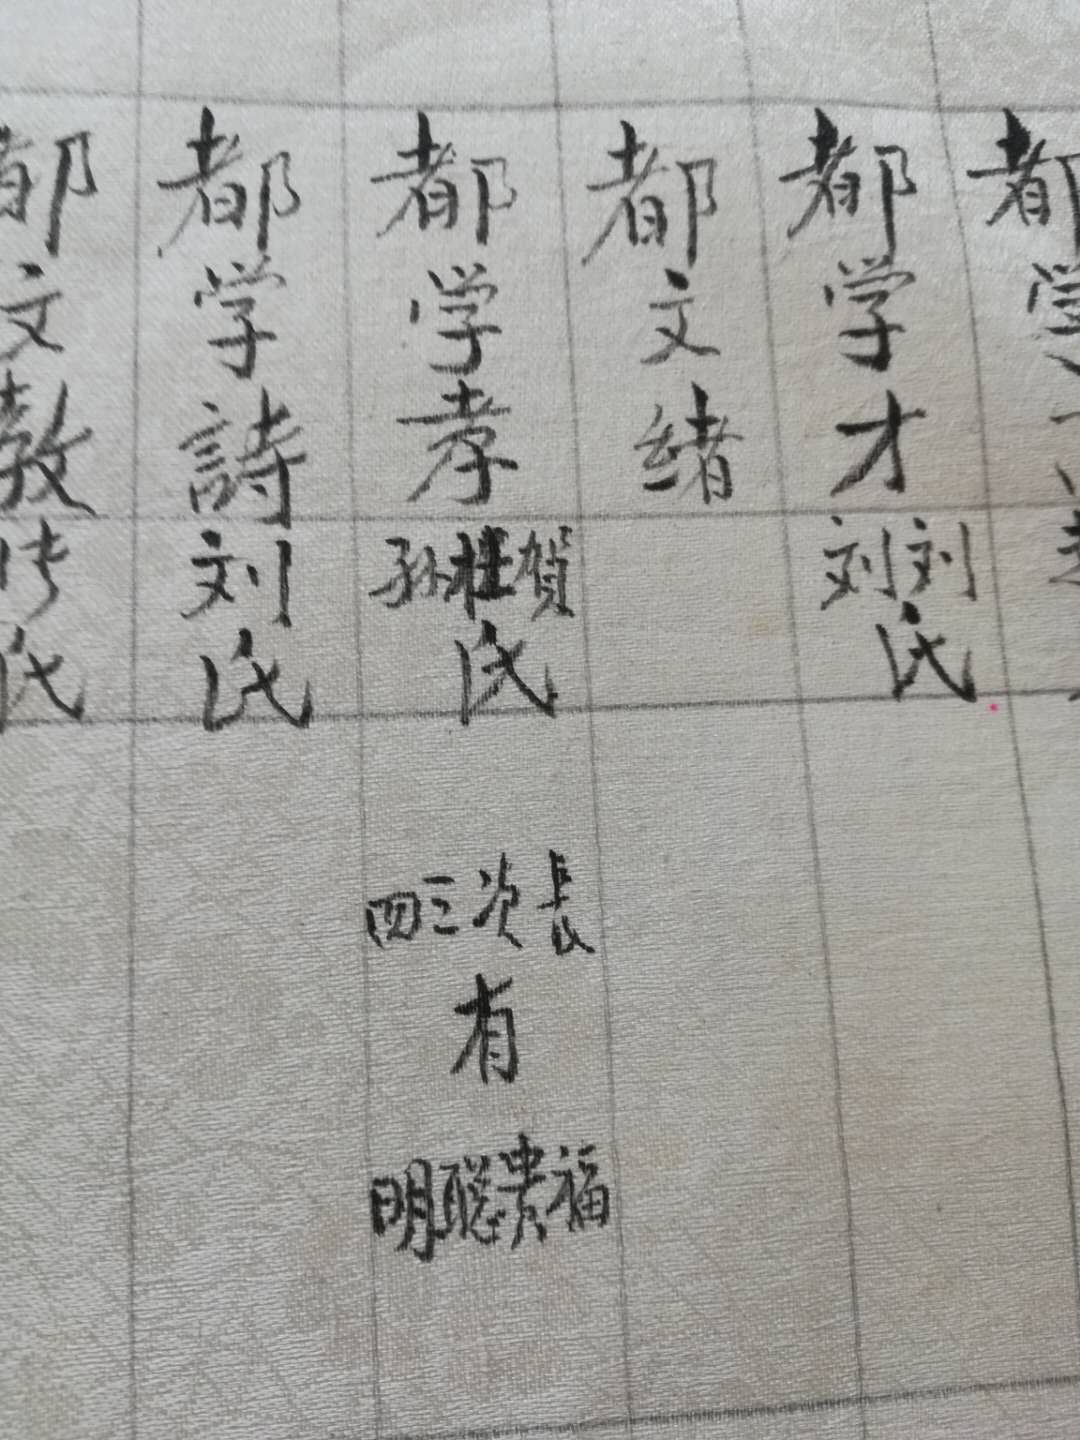 都学
都学才
刘刘氏
都文绪
都学孝
贺桂孙氏
長次三四
有
福贵聪明
都学詩
刘氏
都文教
氏